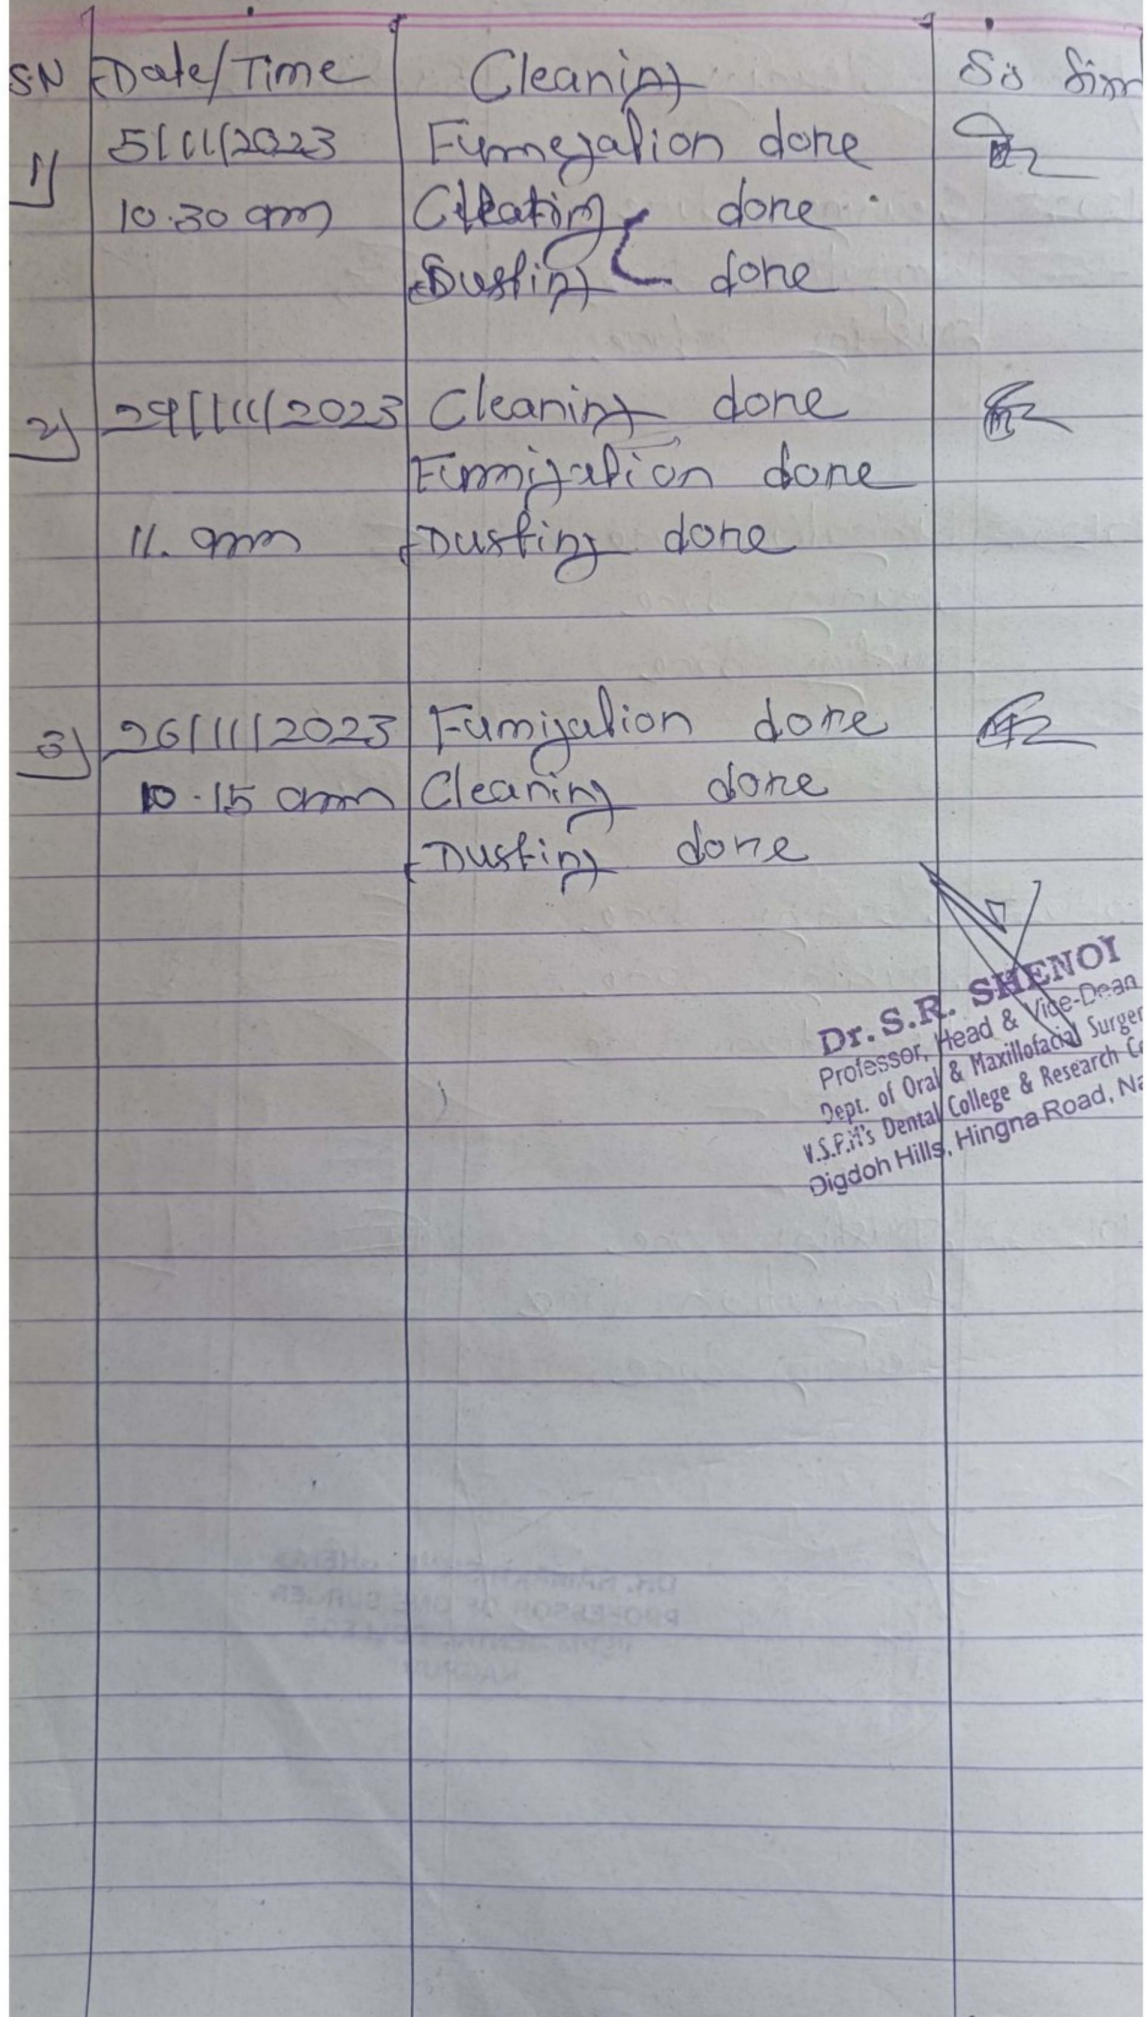 S.N Date/Time Cleaning So Sim
1) 5/11/2023 Fumegation done
10.30 am Cleaning done
Dusting done
2) 29/11/2023 Cleaning done
Fumigation done
11. am Dusting done
3) 26/11/2023 Fumigation done
10.15 am Cleaning done
Dusting done
Dr. S.R. SHENOI
Professor, Head & Vice-Dean
Dept. of Oral & Maxillofacial Surger
V.S.P.M's Dental College & Research Co
Digdoh Hills, Hingna Road, Na